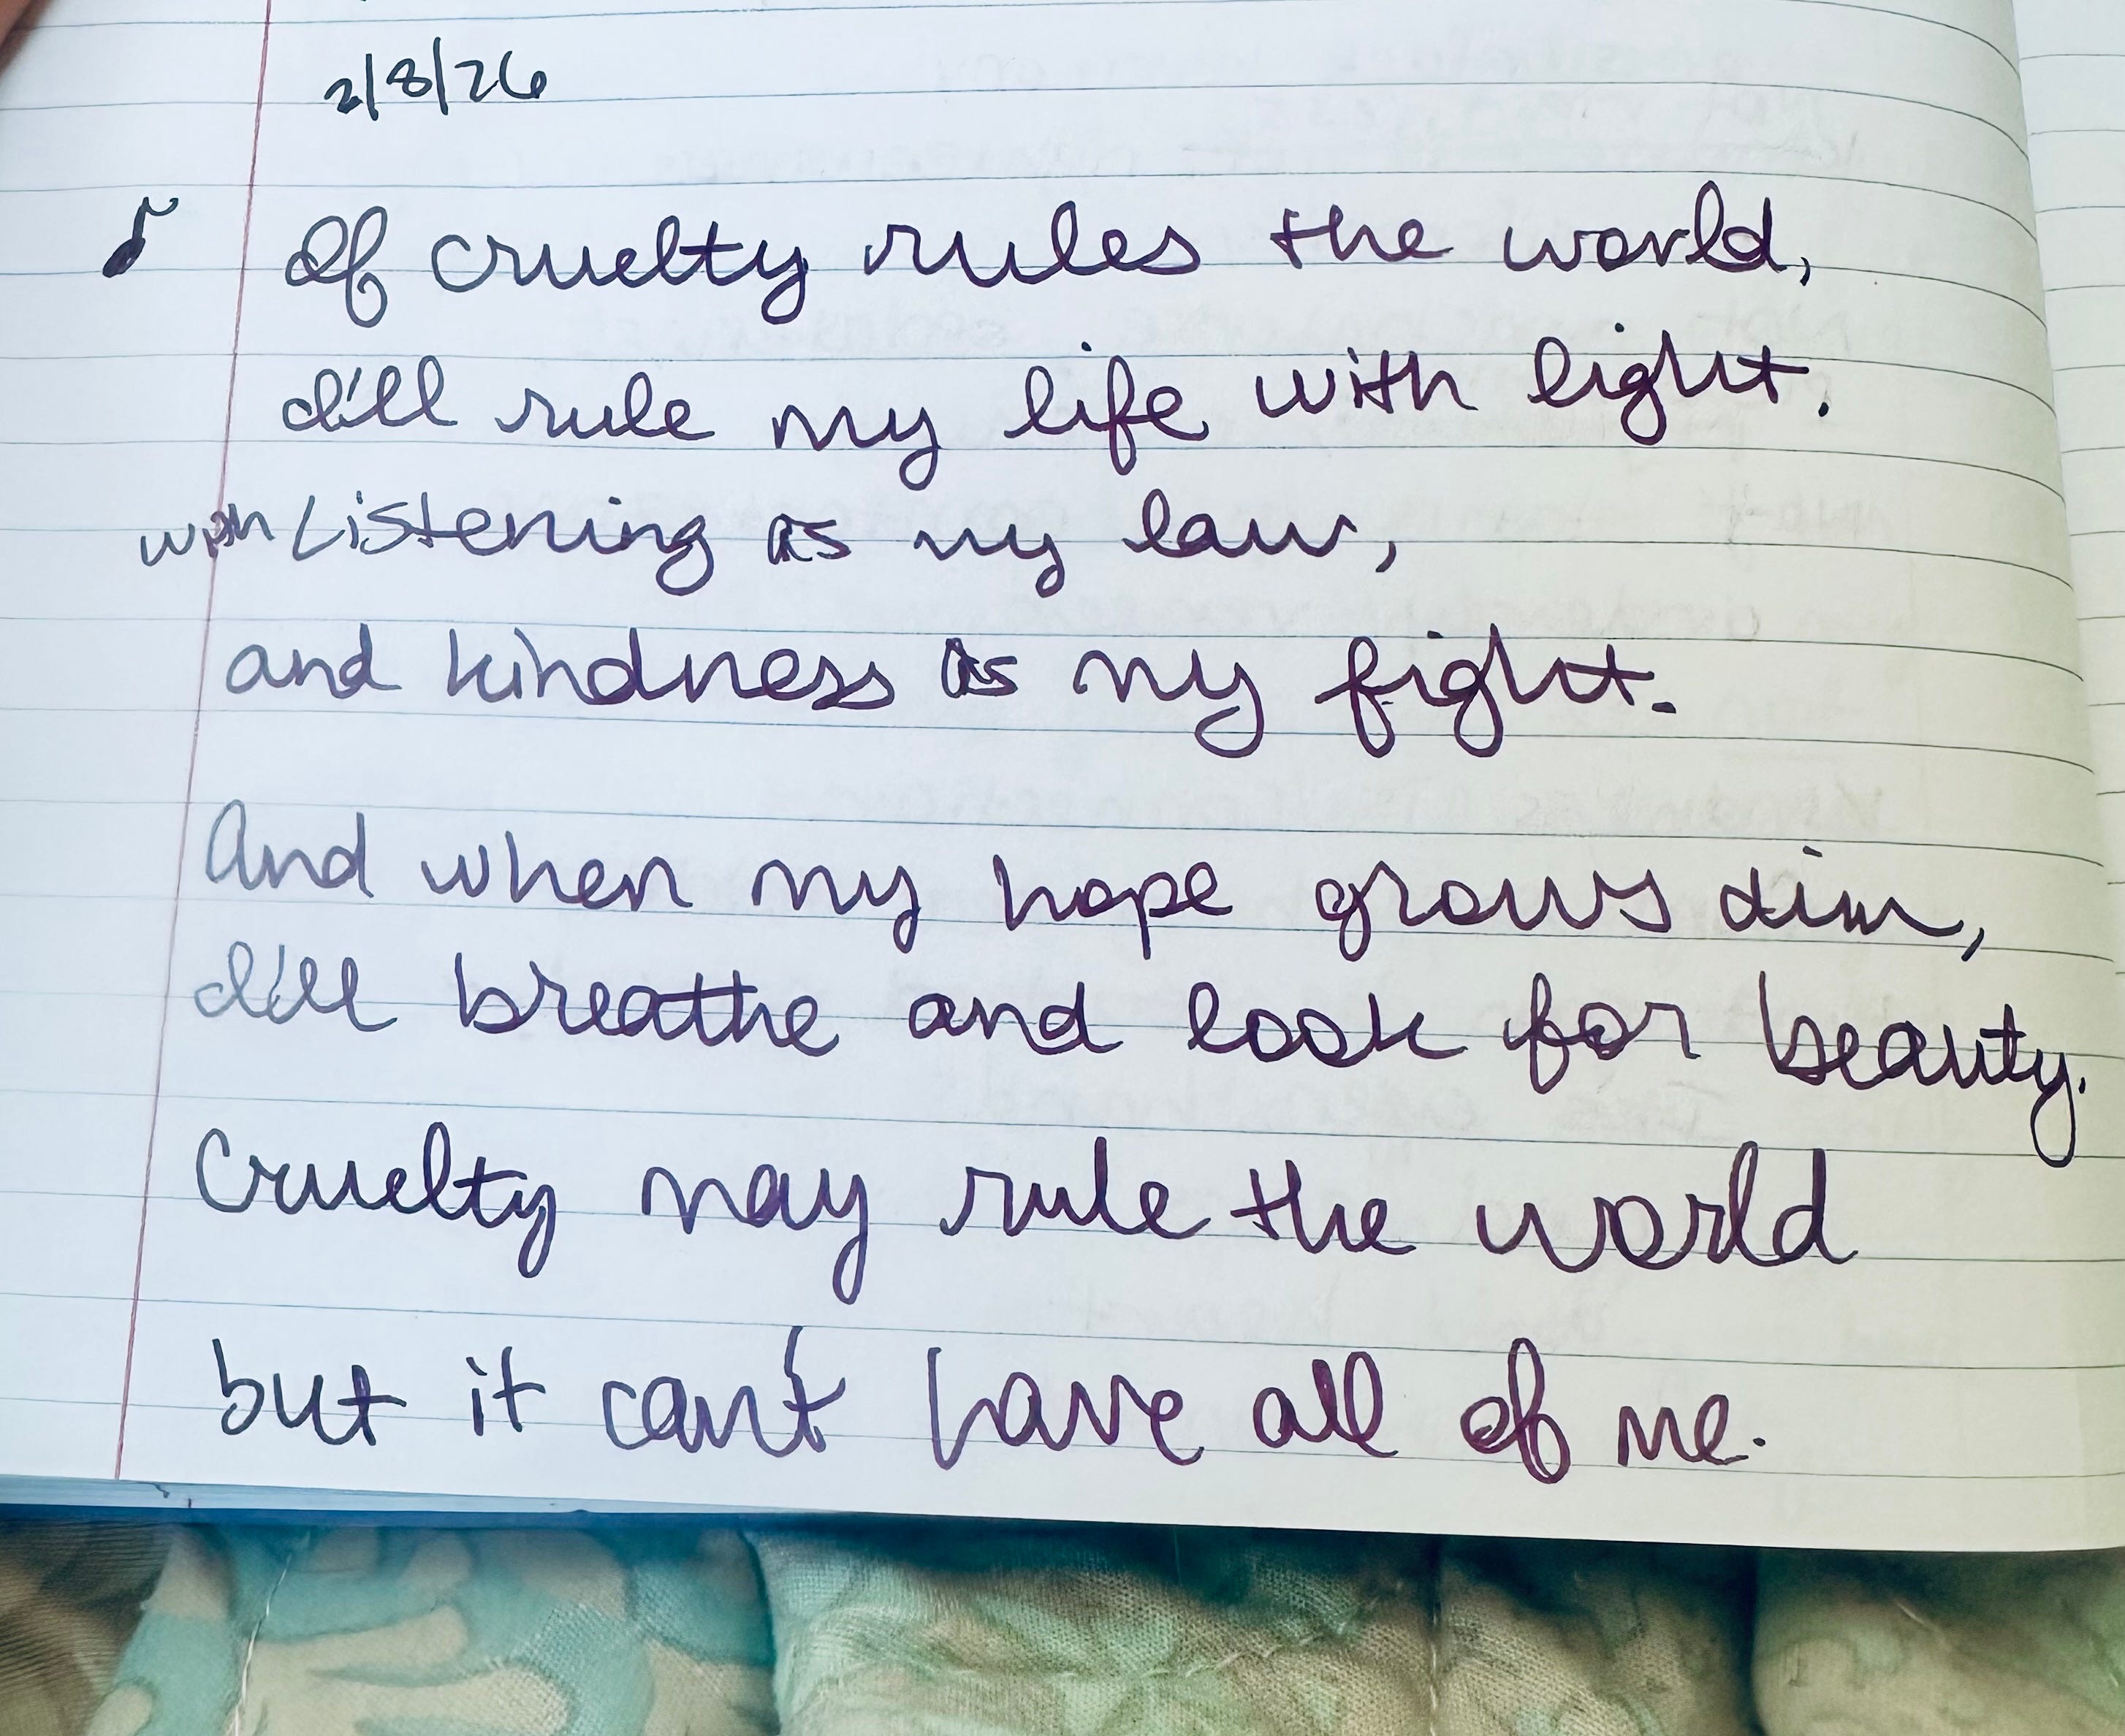 2/8/26
♪ If cruelty rules the world,
I'll rule my life with light.
with Listening as my law,
and kindness as my fight.
And when my hope grows dim,
I'll breathe and look for beauty.
Cruelty may rule the world
but it can't have all of me.